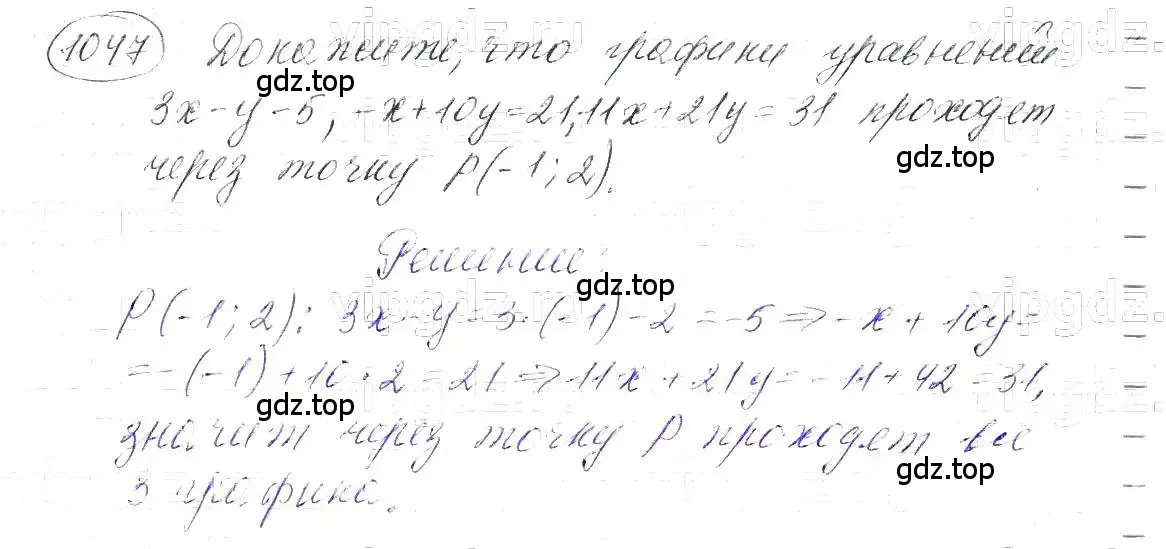 1047 Докажите, что графики уравнений
3x-y-5, -x+10y=21, 11x+21y=31 проходят
через точку P(-1; 2).
Решение:
P(-1; 2): 3x-y=3·(-1)-2=-5 ⇒ -x+10y=
=-(-1)+10·2=21 ⇒ 11x+21y=-11+42=31,
значит через точку P проходят все
3 графика.
gdz.top
gdz.top
gdz.top
gdz.top
gdz.top
gdz.top